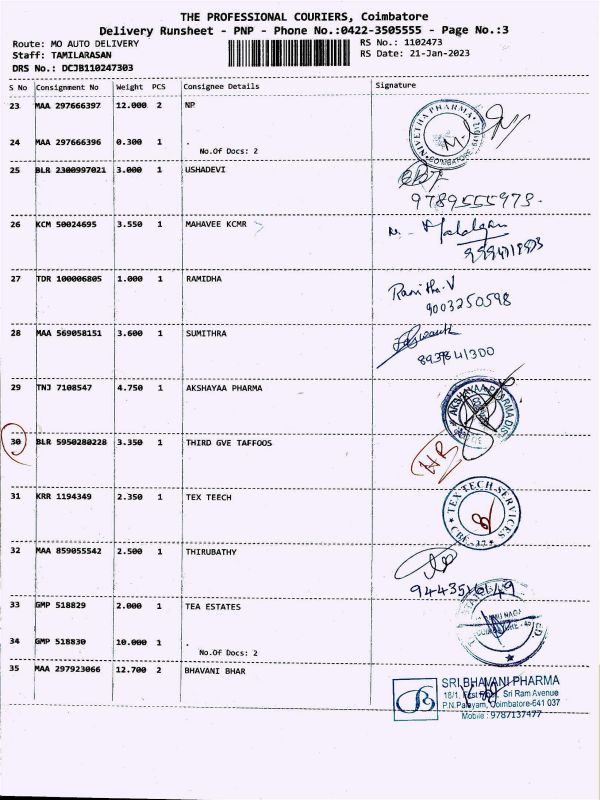 THE PROFESSIONAL COURIERS, Coimbatore
Delivery Runsheet - PNP - Phone No.:0422-3505555 - Page No.:3
Route: MO AUTO DELIVERY
RS No.: 1102473
Staff: TAMILARASAN
RS Date: 21-Jan-2023
DRS No.: DCJB110247303
S No Consignment No Weight PCS Consignee Details Signature
23 MAA 297666397 12.000 2 NP
NIVETHA PHARMA
COIMBATORE
24 MAA 297666396 0.300 1 .
No.Of Docs: 2
25 BLR 2300997021 3.000 1 USHADEVI
9789555973.
26 KCM 50024695 3.550 1 MAHAVEE KCMR
27 TDR 100006805 1.000 1 RAMIDHA
Ramitha.V
9003250598
28 MAA 569058151 3.600 1 SUMITHRA
29 TNJ 7108547 4.750 1 AKSHAYAA PHARMA
AKSHAYAA PHARMA DIST
30 BLR 5950280228 3.350 1 THIRD GVE TAFFOOS
NR
31 KRR 1194349 2.350 1 TEX TEECH
TEX TECH SERVICES
CBE-37
32 MAA 859055542 2.500 1 THIRUBATHY
33 GMP 518829 2.000 1 TEA ESTATES
34 GMP 518830 10.000 1 .
No.Of Docs: 2
35 MAA 297923066 12.700 2 BHAVANI BHAR
SRI BHAVANI PHARMA
18/1, First Floor, Sri Ram Avenue
P.N.Palayam, Coimbatore-641 037
Mobile : 9787137477